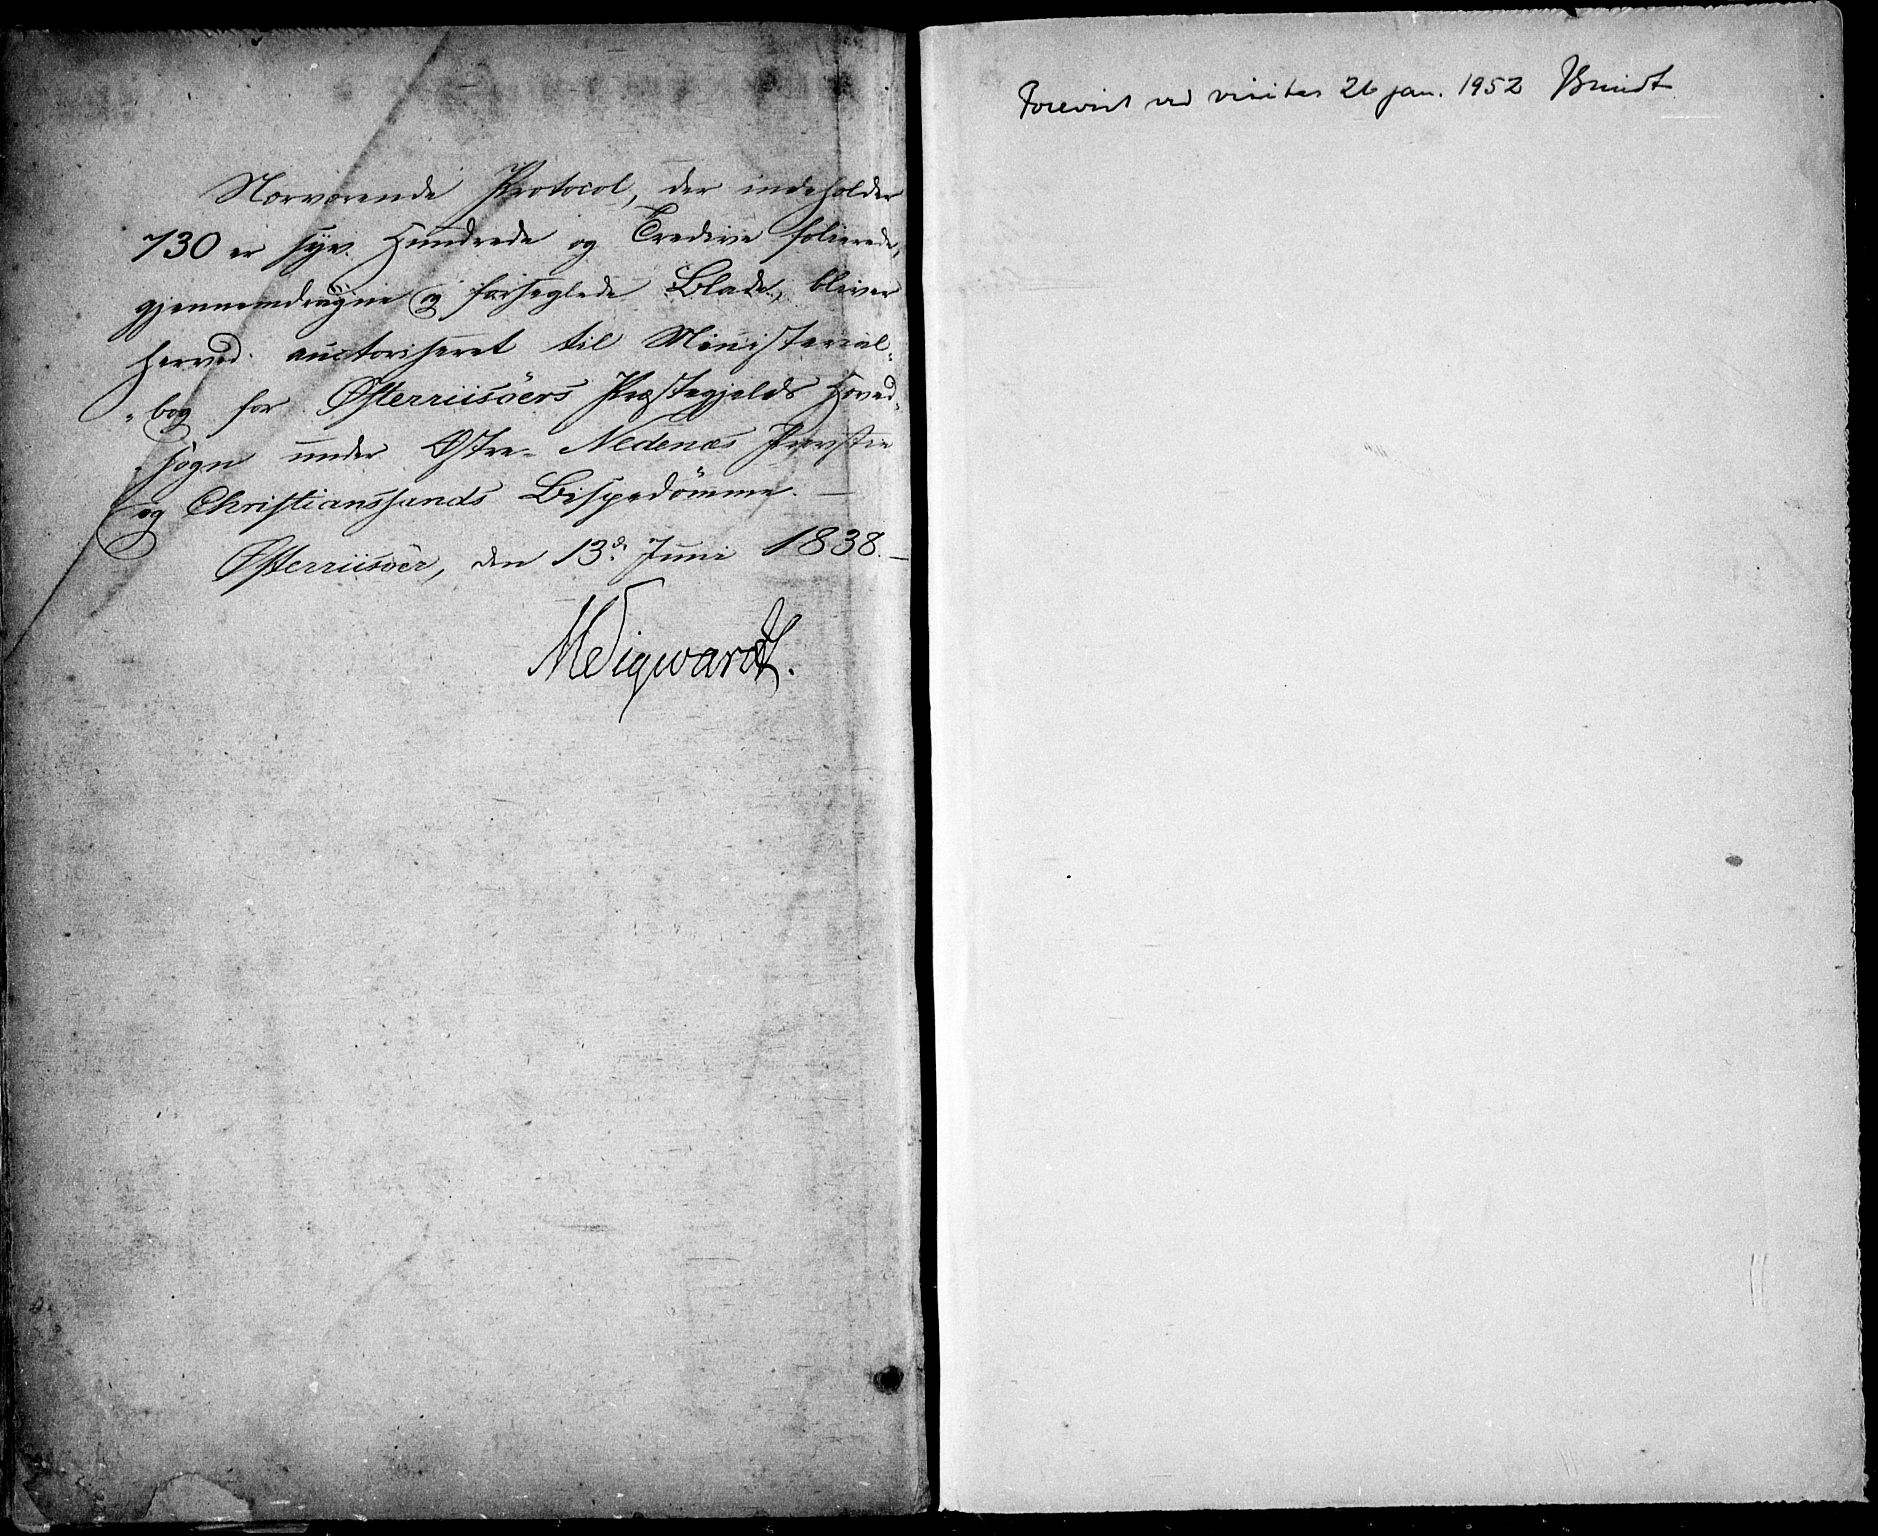 Nærværende Protocol, der indeholder
730 er syv Hundrede og Tredive folierede,
gjennemdragne og forseglede Blade, bliver
herved auctoriseret til Ministerial-
-bog for Østerriisöers Præstegjelds Hoved-
-sogn under Østre-Nedenæs Provstie
og Christianssands Bispedömme. —
Østerriisöer, den 13de Juni 1838. —
MSigwardt.
Forevist ved visitas 26 jan. 1952